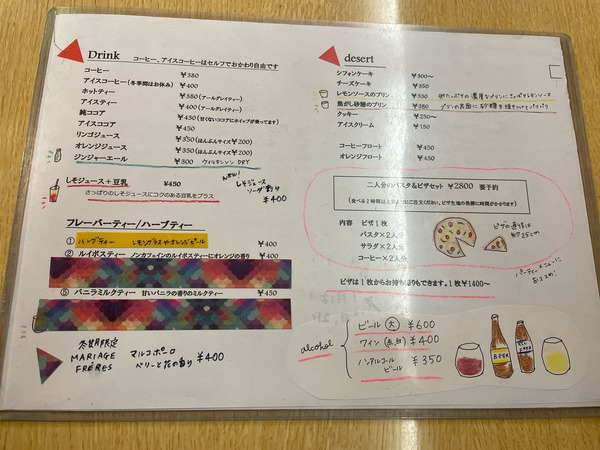 Drink コーヒー、アイスコーヒーはセルフでおかわり自由です
コーヒー ¥350
アイスコーヒー(冬季間はお休み) ¥400
ホットティー ¥350(アールグレイティー)
アイスティー ¥400(アールグレイティー)
純ココア ¥430(甘くないココアにホイップが乗ってます)
アイスココア ¥450
リンゴジュース ¥350(はんぶんサイズ¥200)
オレンジジュース ¥350(はんぶんサイズ¥200)
ジンジャーエール ¥300 ウィルキンソン DRY
しそジュース+豆乳 ¥450
さっぱりのしそジュースにコクのある豆乳をプラス
しそジュース
ソーダ割り
¥400
フレーバーティー/ハーブティー
① ハーブティー レモングラスやオレンジピール ¥400
② ルイボスティー ノンカフェインのルイボスティーにオレンジの香り ¥400
⑤ バニラミルクティー 甘いバニラの香りのミルクティー ¥450
冬期限定
MARIAGE
FRÈRES
マルコポーロ
ベリーと花の香り ¥400
desert
シフォンケーキ ¥300〜
チーズケーキ ¥350
レモンソースのプリン ¥350
焦がし砂糖のプリン ¥380 プリンの表面に砂糖を焼きつけてパリパリ
クッキー ¥250〜
アイスクリーム ¥150
コーヒーフロート ¥450
オレンジフロート ¥450
二人分のパスタ&ピザセット ¥2800 要予約
内容 ピザ1枚
パスタ×2人分
サラダ×2人分
コーヒー×2人分
ピザの直径は
約25cm
ピザは1枚からお持ち帰りもできます。1枚¥1400〜
パーティメニューに
おススメ!
alcohol
ビール(大) ¥600
ワイン(赤,白) ¥400
ノンアルコール
ビール ¥350
BEER